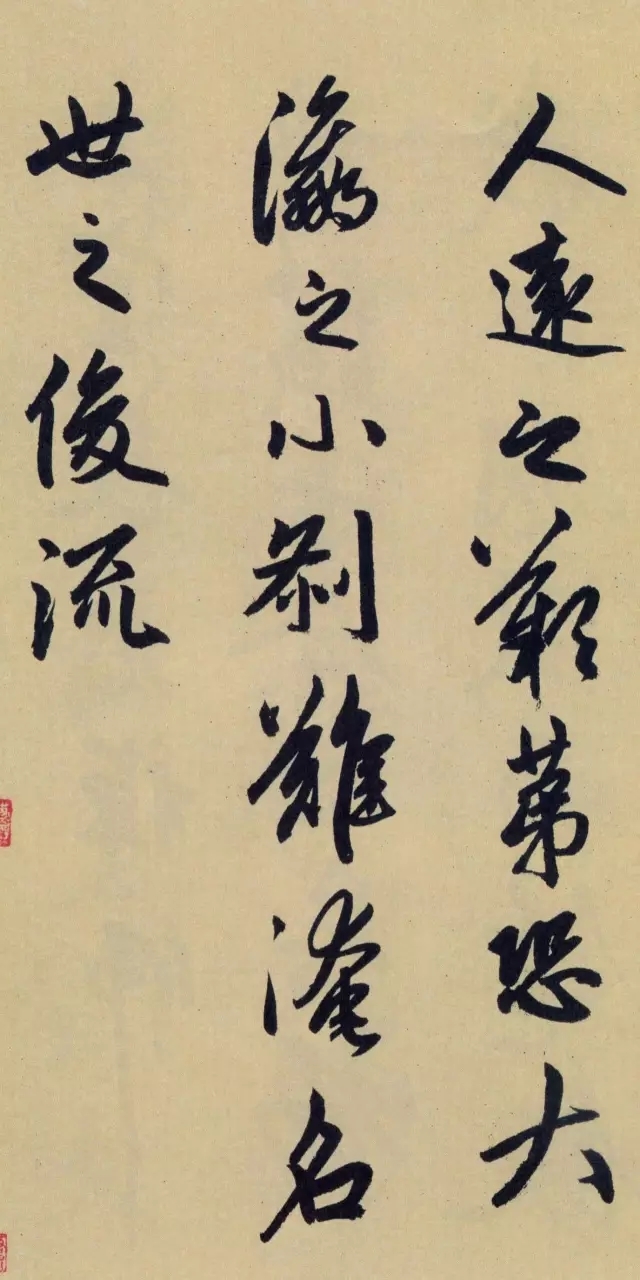 人遠之歎苐恐大
瀛之小刹難淹名
世之俊流